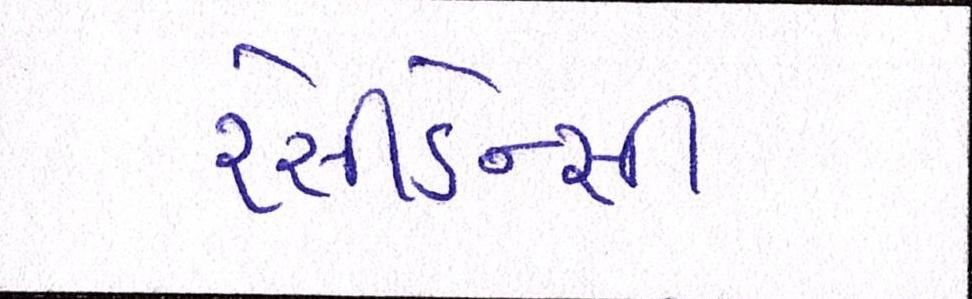 રેસીડેન્સી